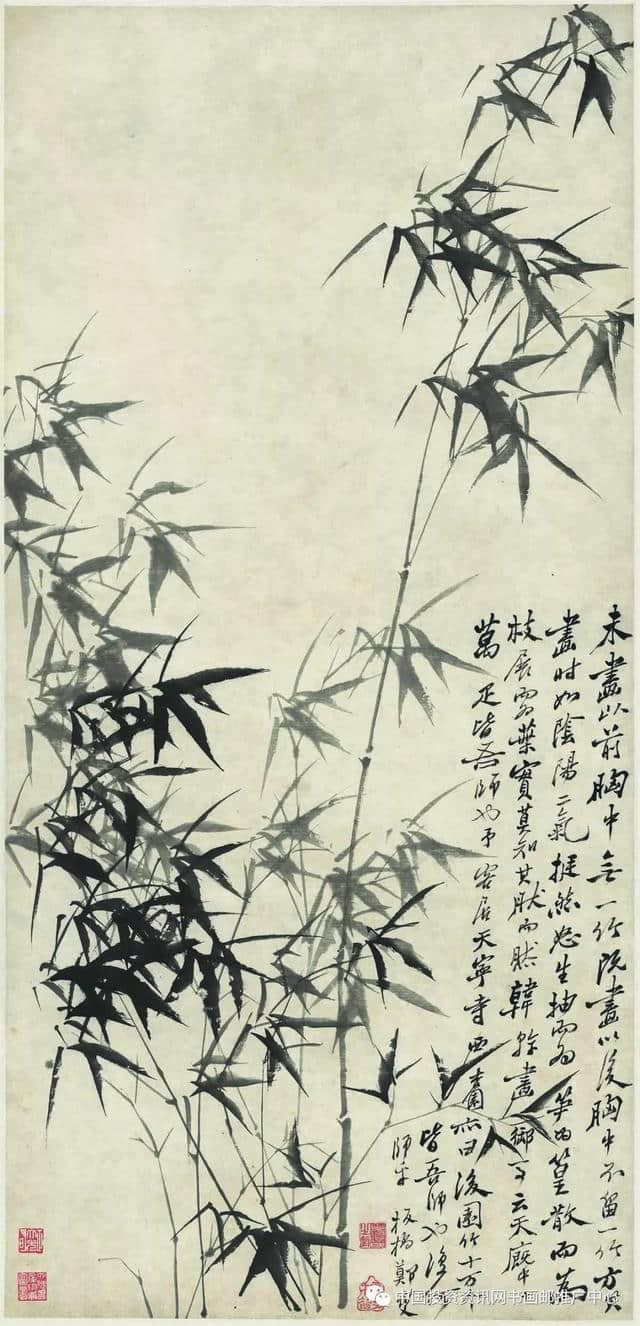 未畫以前胸中無一竹既畫以後胸中不留一竹方其
畫時如陰陽二氣挺然怒生抽而為筍為篁散而為
枝展而為葉實莫知其然而然韓幹畫御馬云天廄中
萬疋皆吾師也予客居天寧寺西亦曰後園竹十万
皆吾師也復
師乎 板橋鄭燮
中国投资资讯网书画邮推广中心